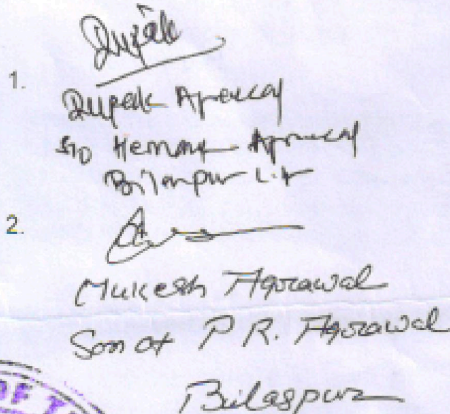 1.
Dupak
Dupak Agrawal
S/o Hemant Agrawal
Bilaspur
2.
Mukesh Agrawal
Son of P R. Agrawal
Bilaspur
OF T